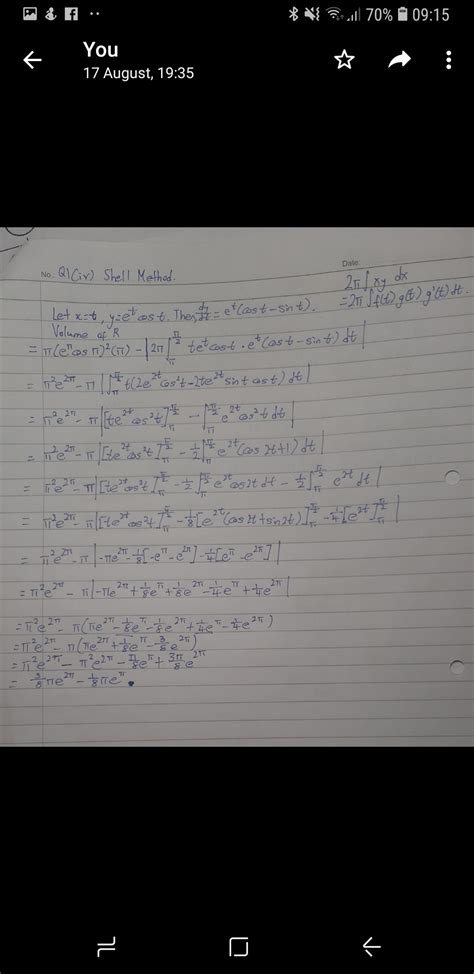 70% 09:15
You
17 August, 19:35
No.: Q1(iv) Shell Method.
Date:
2π ∫ xy dx
= 2π ∫ f(t) g(t) g'(t) dt.
Let x=t, y=e^t cos t. Then dy/dt = e^t (cos t - sin t).
Volume of R
= π(e^π cos π)²(π) - |2π ∫_π^{π/2} te^t cos t · e^t (cos t - sin t) dt|
= π²e^{2π} - π |∫_π^{π/2} t(2e^{2t} cos²t - 2te^{2t} sin t cos t) dt|
= π²e^{2π} - π |[te^{2t} cos²t]_π^{π/2} - ∫_π^{π/2} e^{2t} cos²t dt|
= π²e^{2π} - π |[te^{2t} cos²t]_π^{π/2} - 1/2 ∫_π^{π/2} e^{2t} (cos 2t + 1) dt|
= π²e^{2π} - π |[te^{2t} cos²t]_π^{π/2} - 1/2 ∫_π^{π/2} e^{2t} cos 2t dt - 1/2 ∫_π^{π/2} e^{2t} dt|
= π²e^{2π} - π |[te^{2t} cos²t]_π^{π/2} - 1/8 [e^{2t} (cos 2t + sin 2t)]_π^{π/2} - 1/4 [e^{2t}]_π^{π/2}|
= π²e^{2π} - π |-πe^{2π} - 1/8 [-e^π - e^{2π}] - 1/4 [e^π - e^{2π}]|
= π²e^{2π} - π |-πe^{2π} + 1/8 e^π + 1/8 e^{2π} - 1/4 e^π + 1/4 e^{2π}|
= π²e^{2π} - π (πe^{2π} - 1/8 e^π - 1/8 e^{2π} + 1/4 e^π - 1/4 e^{2π})
= π²e^{2π} - π (πe^{2π} + 1/8 e^π - 3/8 e^{2π})
= π²e^{2π} - π²e^{2π} - π/8 e^π + 3π/8 e^{2π}
= 3/8 πe^{2π} - 1/8 πe^π.